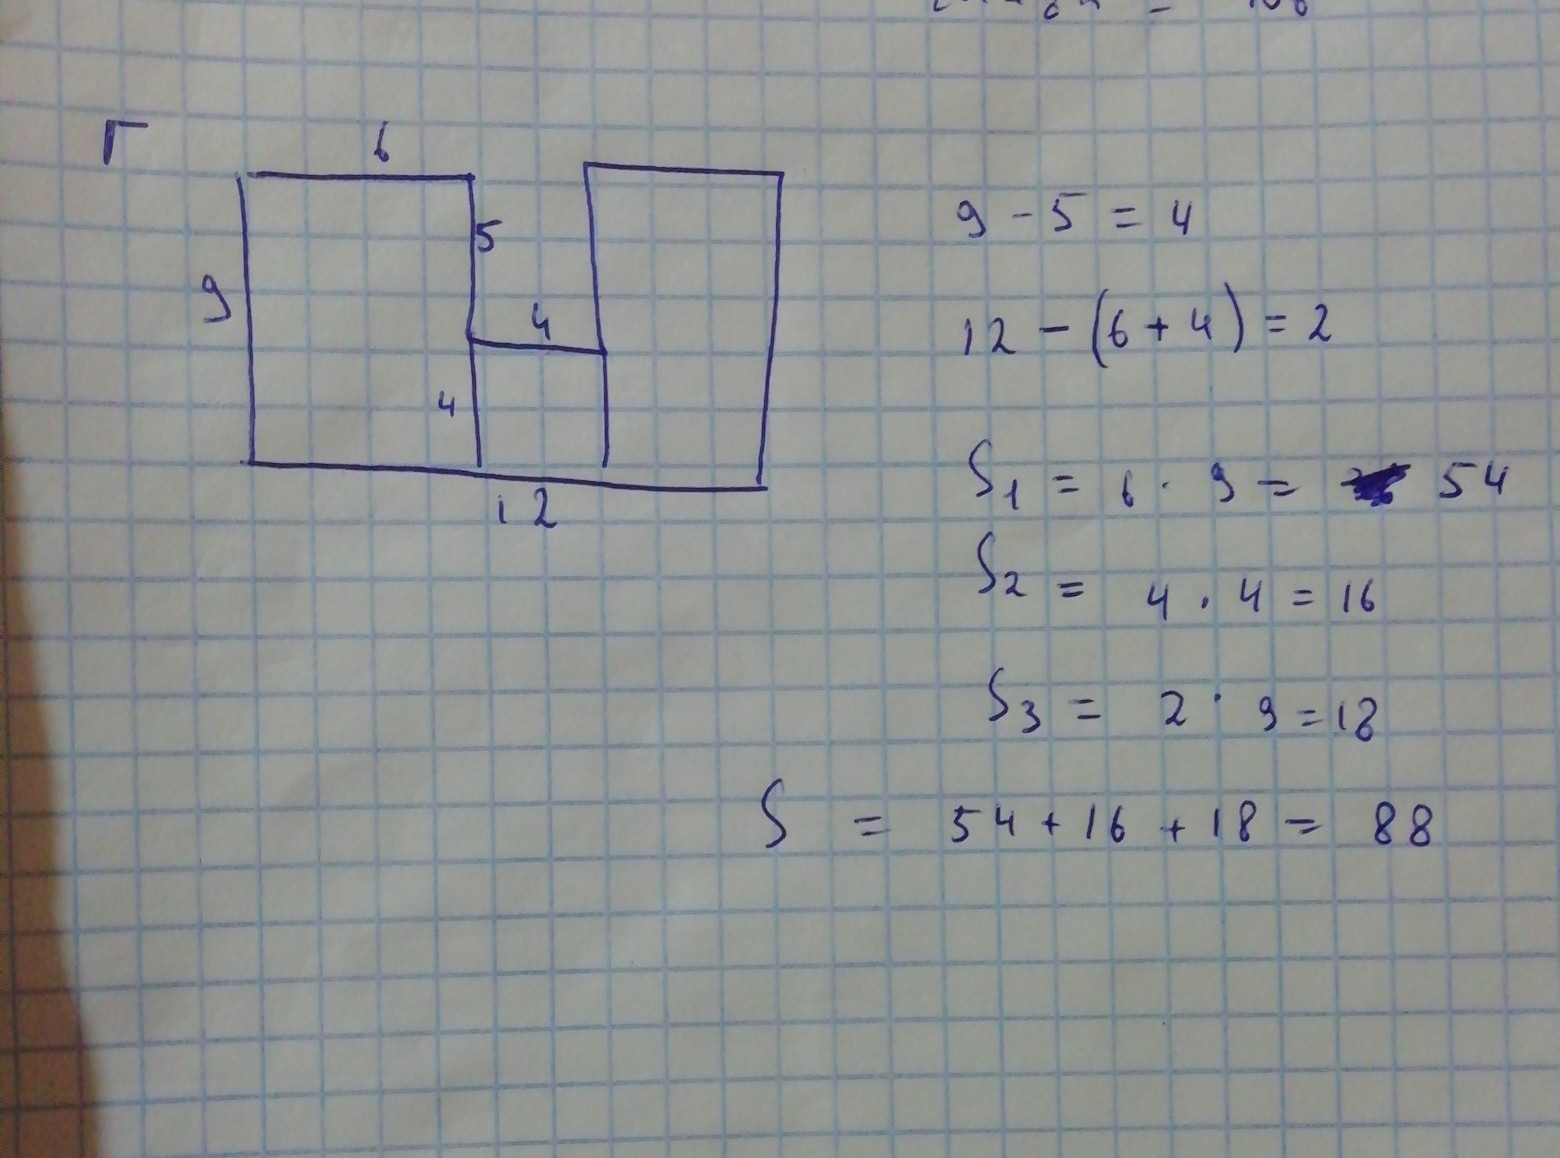 Г
6
5
9
4
4
12
9 - 5 = 4
12 - (6 + 4) = 2
S1 = 6 · 9 = 54
S2 = 4 · 4 = 16
S3 = 2 · 9 = 18
S = 54 + 16 + 18 = 88